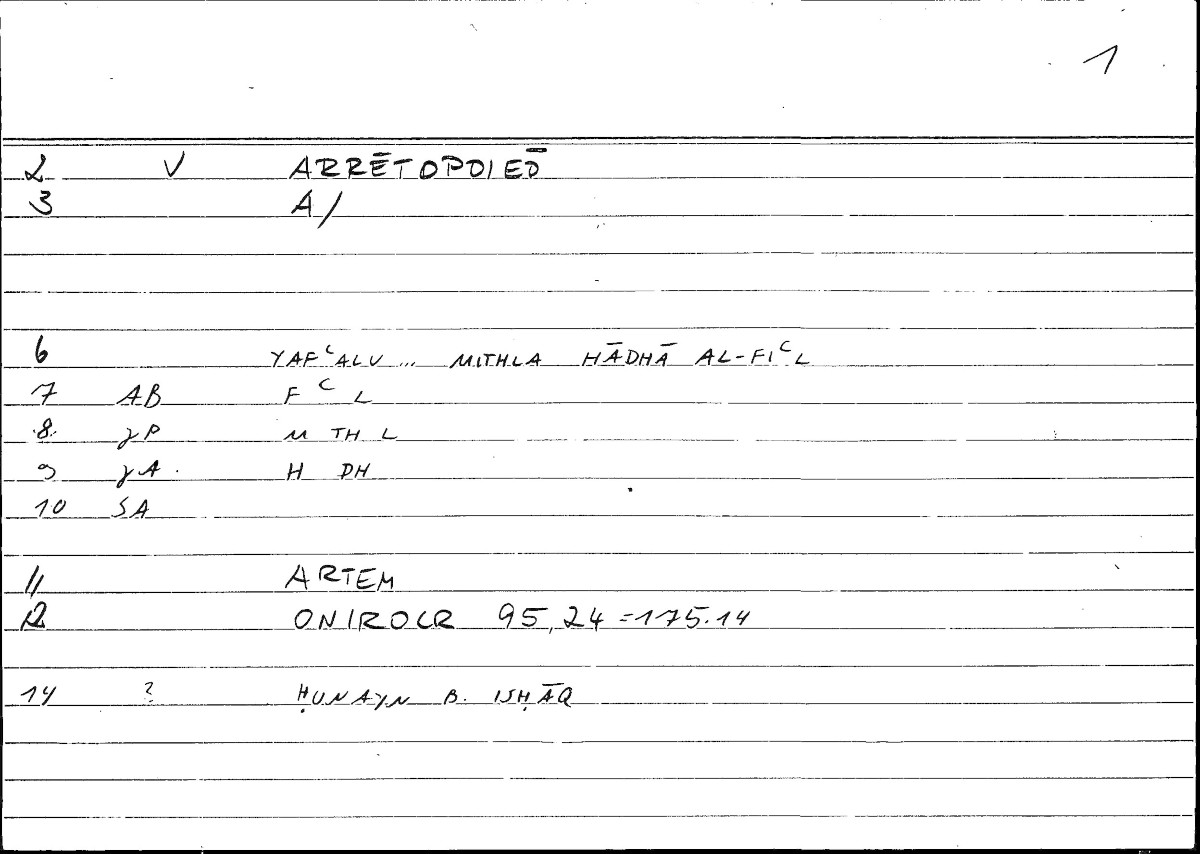 1
2 V ARRĒTOPOIEŌ
3 A/
6 YAFʿALU ... MITHLA HĀDHĀ AL-FIʿL
7 AB F ʿ L
8 γP M TH L
9 γA H DH
10 SA
11 ARTEM
12 ONIROCR 95,24 =175.14
14 ? ḤUNAYN B. ISḤĀQ